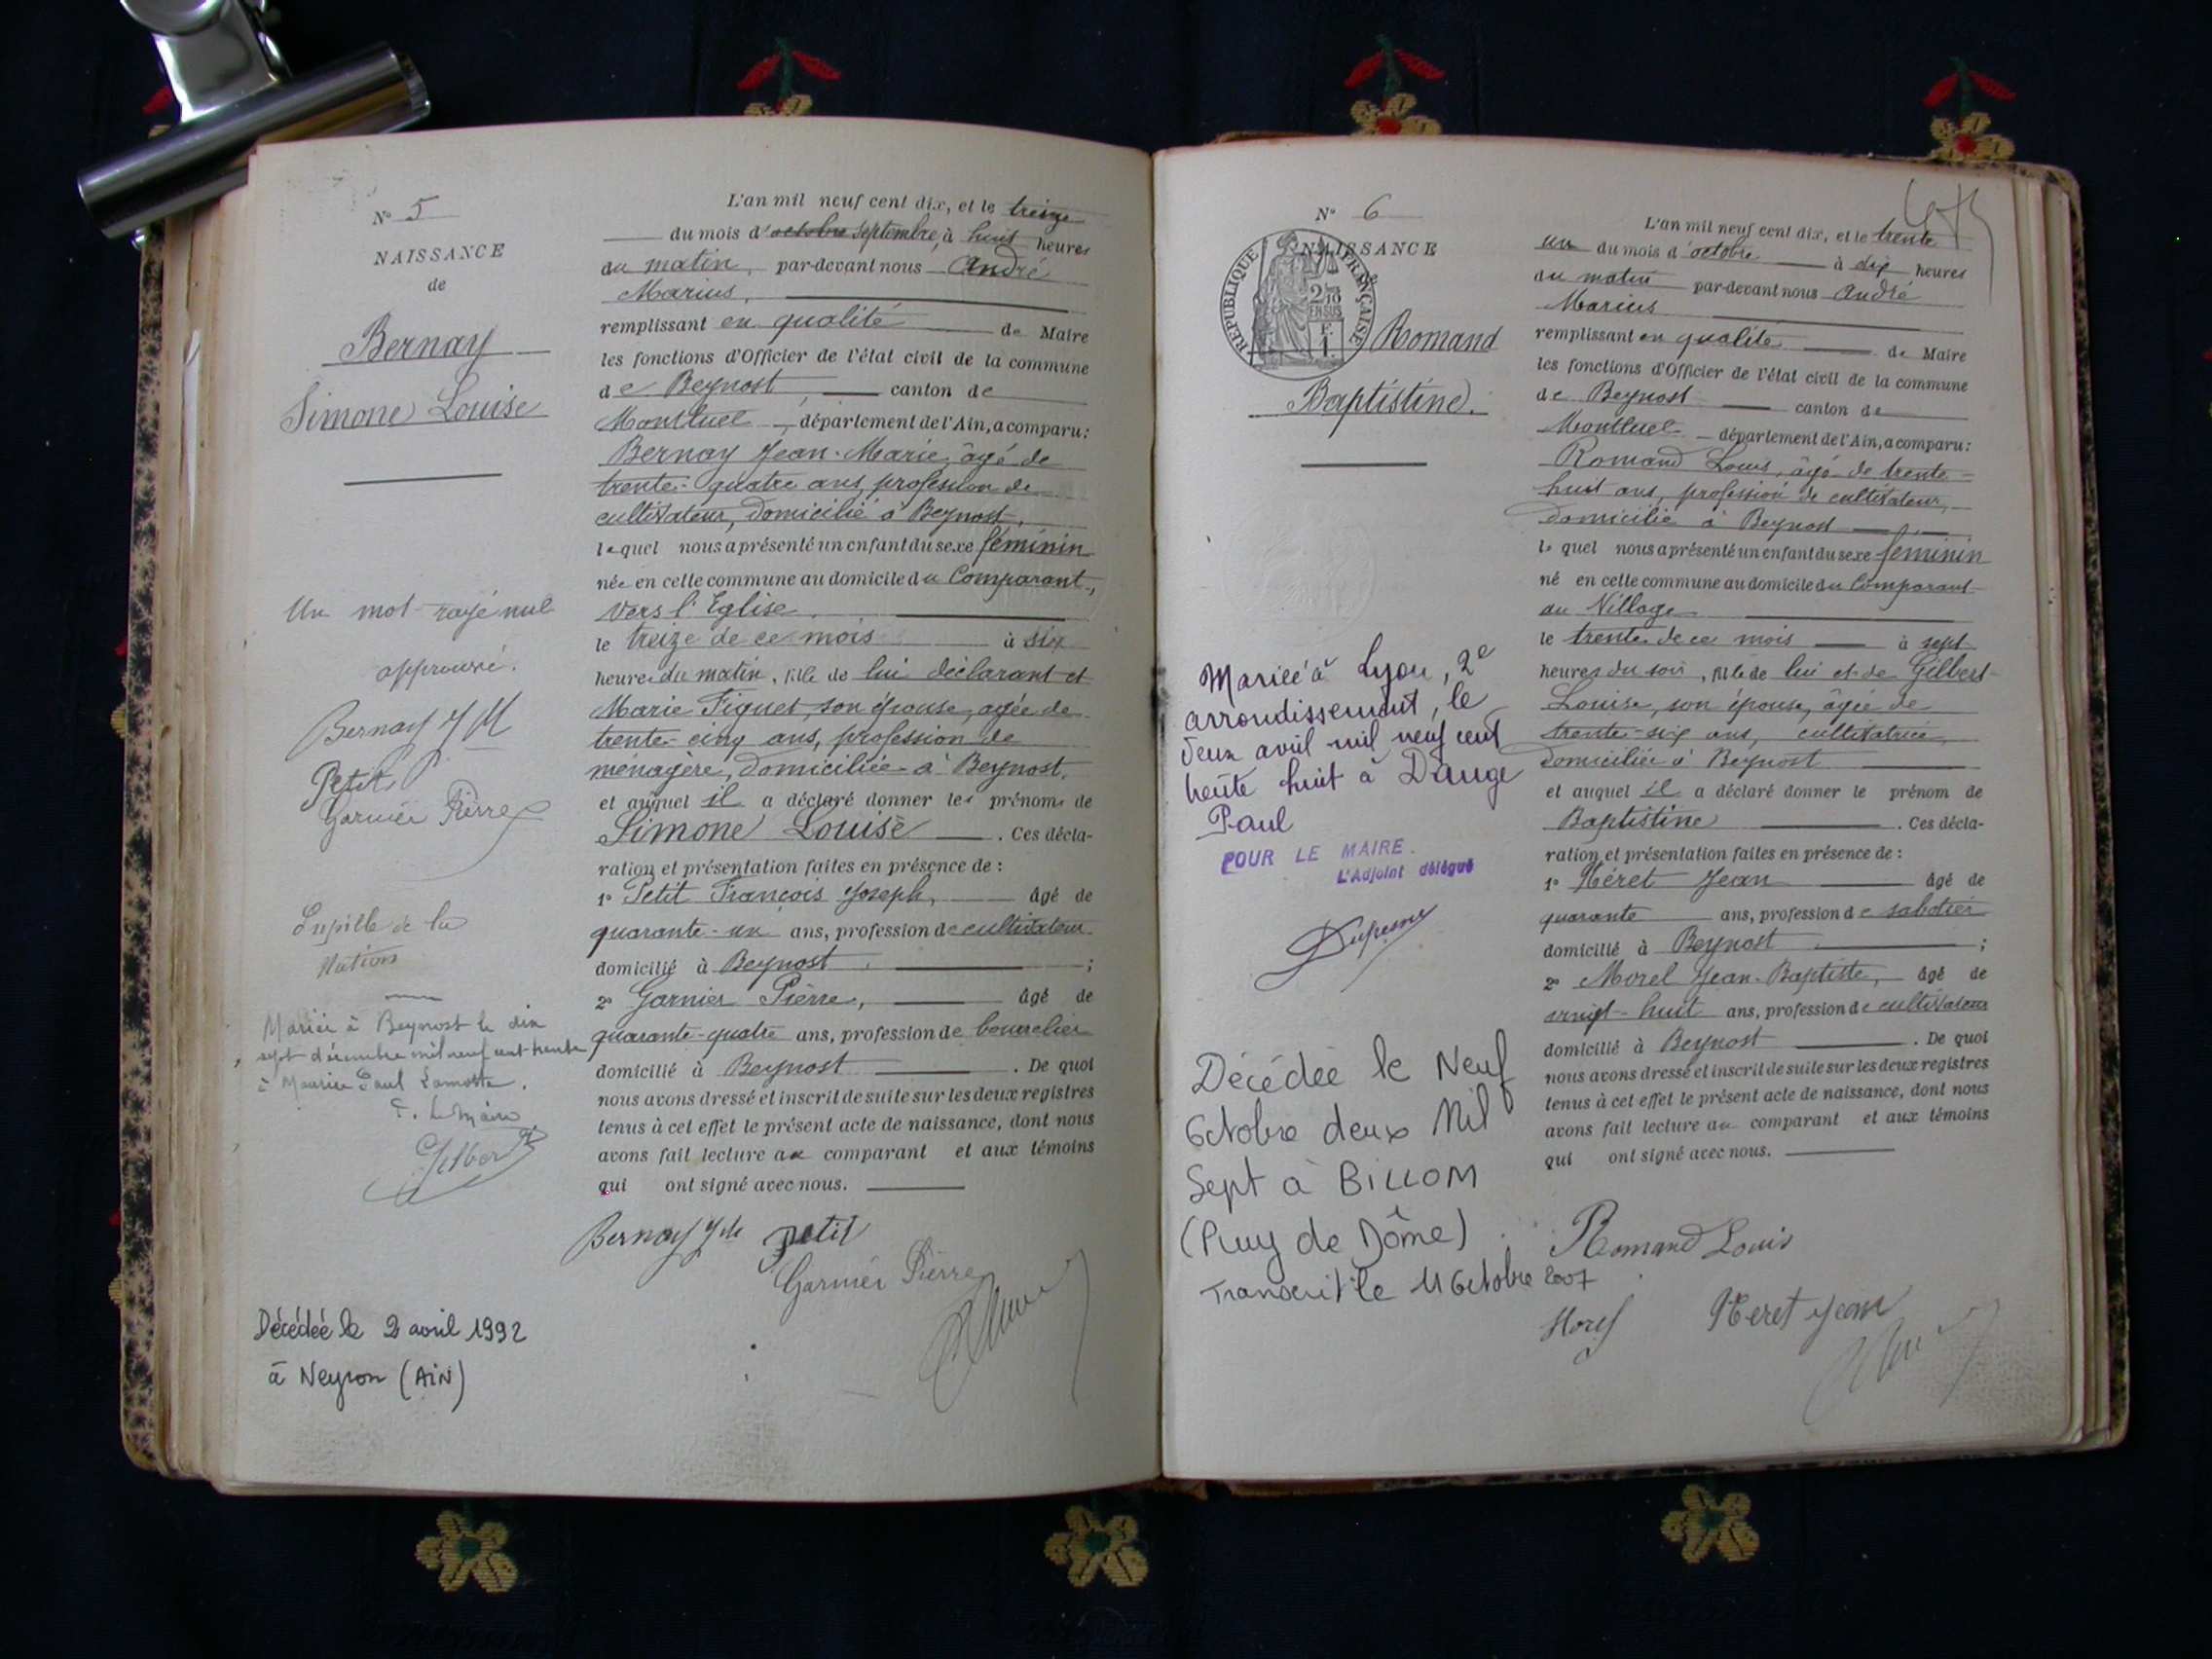 N° 5
NAISSANCE
de
Bernay
Simone Louise
Un mot rayé nul
approuvé.
Bernay J M
Petit
Garnier Pierre
Pupille de la
Nation
Mariée à Beynost le dix
sept décembre mil neuf cent trente
à Maurice Paul Lamotte.
Le Maire
Gilbert
Décédée le 2 avril 1992
à Neyron (AIN)
L'an mil neuf cent dix, et le treize
du mois d'octobre septembre, à huit heures
du matin, par-devant nous André
Marius,
remplissant en qualité de Maire
les fonctions d'Officier de l'état civil de la commune
de Beynost, canton de
Montluel, département de l'Ain, a comparu:
Bernay Jean-Marie, âgé de
trente-quatre ans, profession de
cultivateur, domicilié à Beynost,
lequel nous a présenté un enfant du sexe féminin
née en cette commune au domicile du Comparant,
vers l'Eglise
le treize de ce mois à six
heures du matin, fille de lui déclarant et
Marie Fiquet, son épouse, agée de
trente-cinq ans, profession de
ménagère, domiciliée à Beynost.
et auquel il a déclaré donner les prénoms de
Simone Louise. Ces décla-
ration et présentation faites en présence de :
1° Petit François Joseph, âgé de
quarante-un ans, profession de cultivateur
domicilié à Beynost ;
2° Garnier Pierre, âgé de
quarante-quatre ans, profession de bourrelier
domicilié à Beynost. De quoi
nous avons dressé et inscrit de suite sur les deux registres
tenus à cet effet le présent acte de naissance, dont nous
avons fait lecture au comparant et aux témoins
qui ont signé avec nous.
Bernay J M Petit
Garnier Pierre
N° 6
NAISSANCE
REPUBLIQUE FRANÇAISE
2/10
EN SUS
F.
1
Romand
Baptistine.
Mariée à Lyon, 2e
arrondissement, le
deux avril mil neuf cent
trente huit à Dauge
Paul
POUR LE MAIRE.
L'Adjoint délégué
Décédée le Neuf
Octobre deux Mil
Sept à BILLOM
(Puy de Dôme)
Transcrit le 11 Octobre 2007
L'an mil neuf cent dix, et le trente
un du mois d'octobre à dix heures
du matin par-devant nous André
Marius
remplissant en qualité de Maire
les fonctions d'Officier de l'état civil de la commune
de Beynost canton de
Montluel département de l'Ain, a comparu:
Romand Louis, âgé de trente-
huit ans, profession de cultivateur,
domicilié à Beynost
lequel nous a présenté un enfant du sexe féminin
né en cette commune au domicile du Comparant
au Village
le trente de ce mois à sept
heures du soir, fille de lui et de Gilbert
Louise, son épouse, âgée de
trente-six ans, cultivatrice
domiciliée à Beynost
et auquel il a déclaré donner le prénom de
Baptistine. Ces décla-
ration et présentation faites en présence de :
1° Héret Jean âgé de
quarante ans, profession de sabotier
domicilié à Beynost ;
2° Morel Jean-Baptiste, âgé de
vingt-huit ans, profession de cultivateur
domicilié à Beynost. De quoi
nous avons dressé et inscrit de suite sur les deux registres
tenus à cet effet le présent acte de naissance, dont nous
avons fait lecture au comparant et aux témoins
qui ont signé avec nous.
Romand Louis
Morel Héret Jean